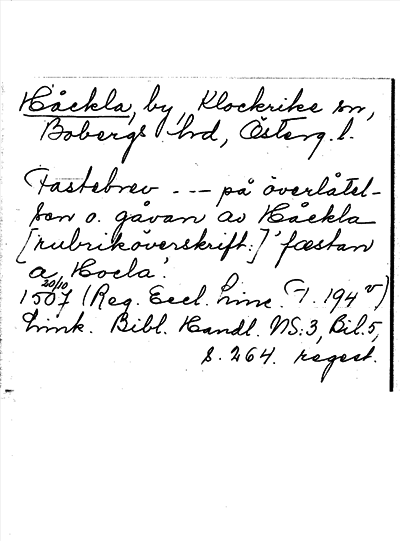 Håckla, by, Klockrike sn,
Bobergs hrd, Österg. l.
Fastebrev --- på överlåtel-
sen o. gåvan av Håckla
[rubriköverskrift:] 'fæstan
a Hocla'.
20/10
1507 (Reg. Eccl. Linc. F. 194 v)
Link. Bibl. Handl. NS:3, Bil. 5,
s. 264. regest.